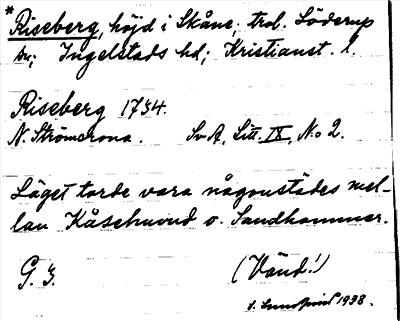 * Riseberg, höjd i Skåne; trol. Löderup
sn; Ingelstads hd; Kristianst. l.
Riseberg 1734.
N. Strömcrona. SvA, Litt. IX, N:o 2.
Läget torde vara någonstädes mel-
lan Kåsehuvud o. Sandhammar.
G. F. (Vänd!)
1938.